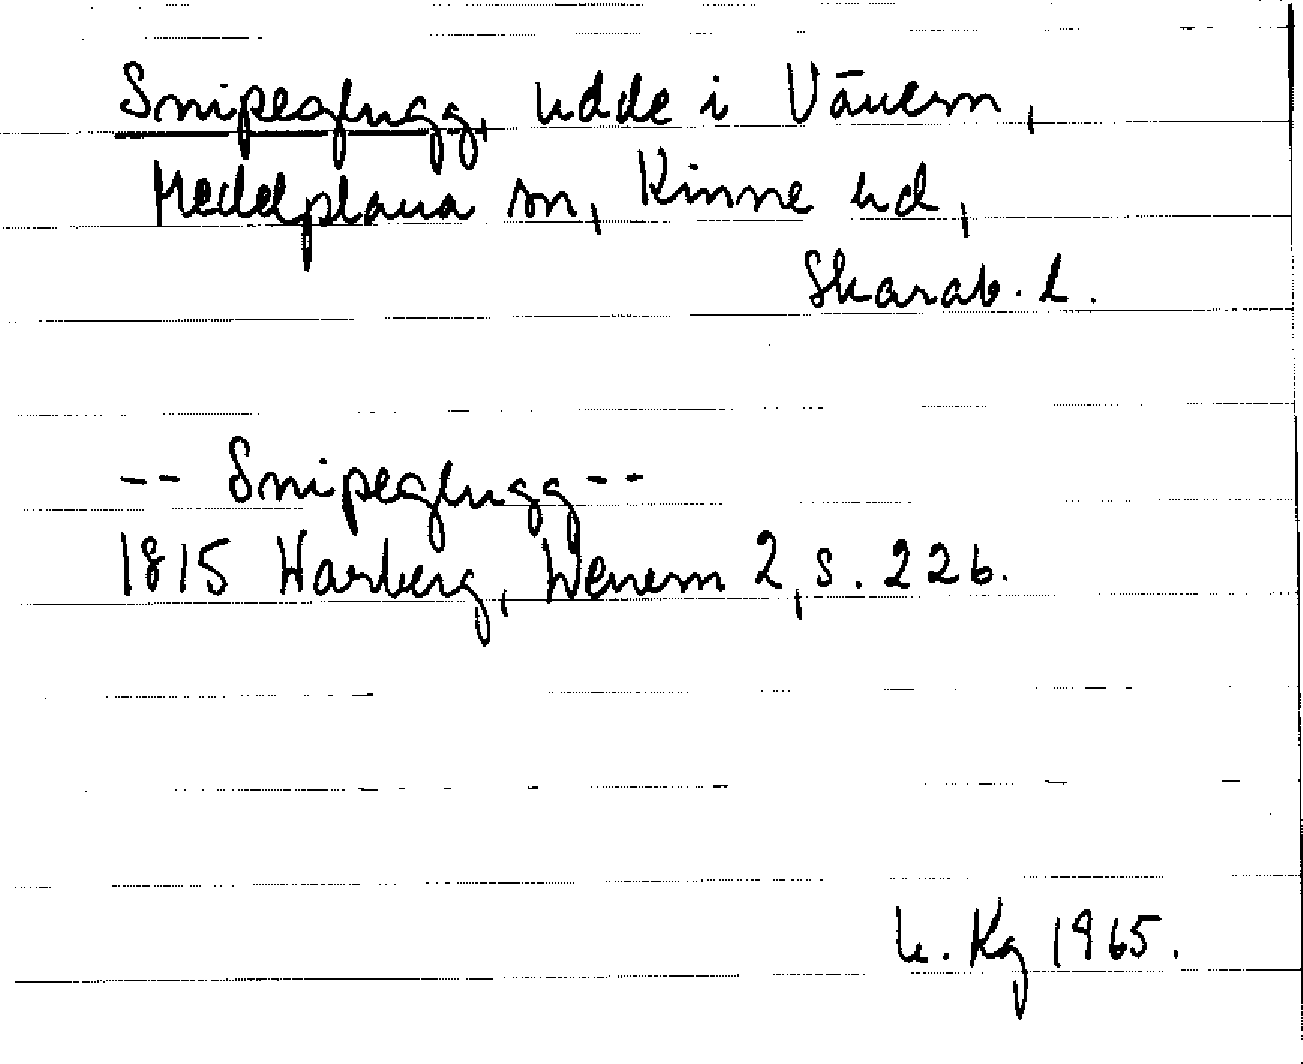 Snipeglugg, udde i Vänern,
Medelplana sn, Kinne hd,
Skarab. l.
-- Snipeglugg --
1815 Warberg, Wenern 2, s. 226.
u. Kg 1965.